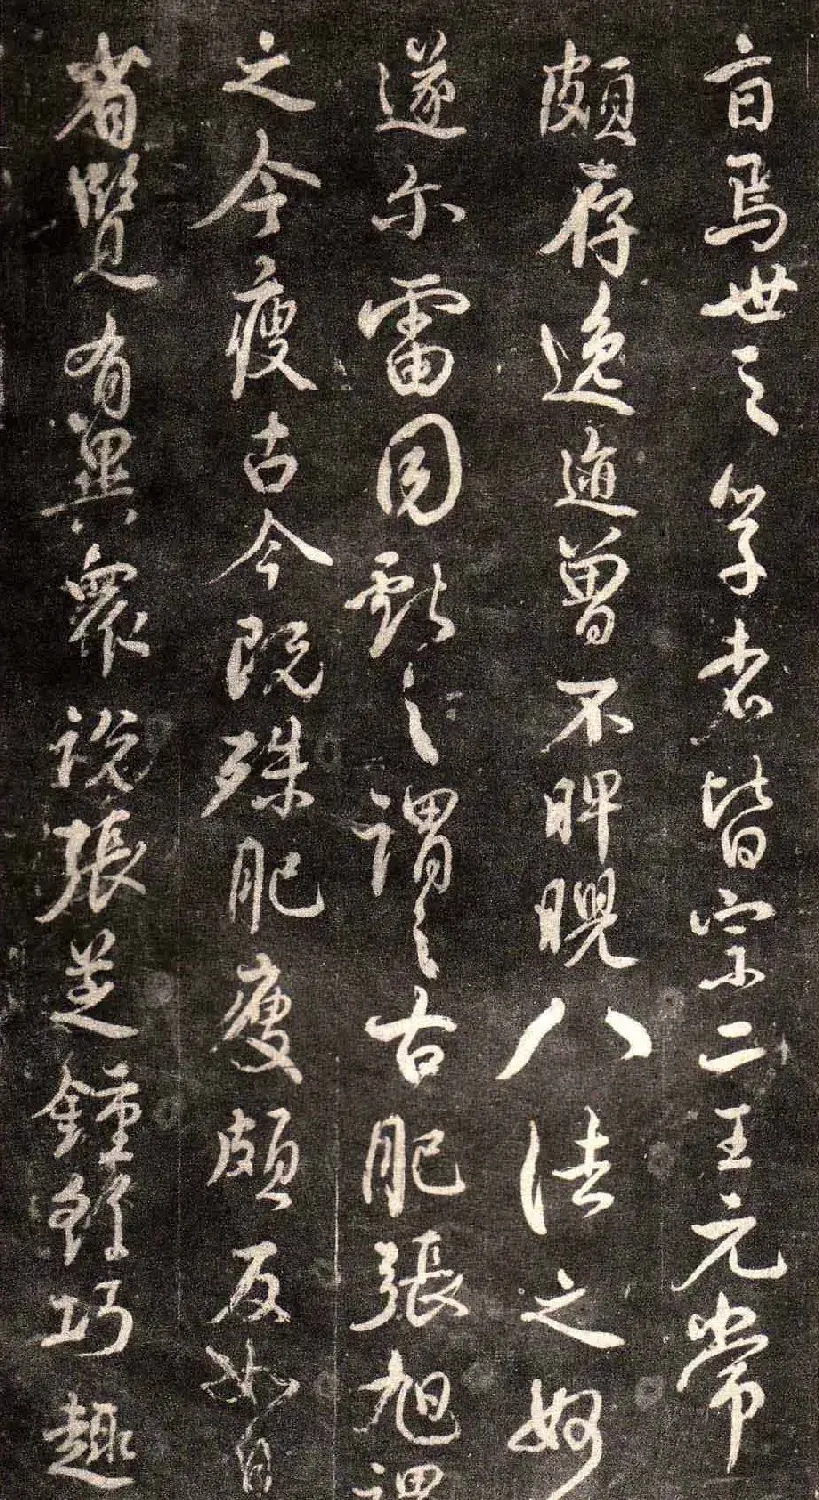 焉世之學者皆宗二王元常
頗存逸迹曾不睥睨八法之妙
遂尔雷同獻之謂之古肥張旭謂
之今瘦古今既殊肥瘦頗反如自
省覽有異眾說張芝鍾繇巧趣